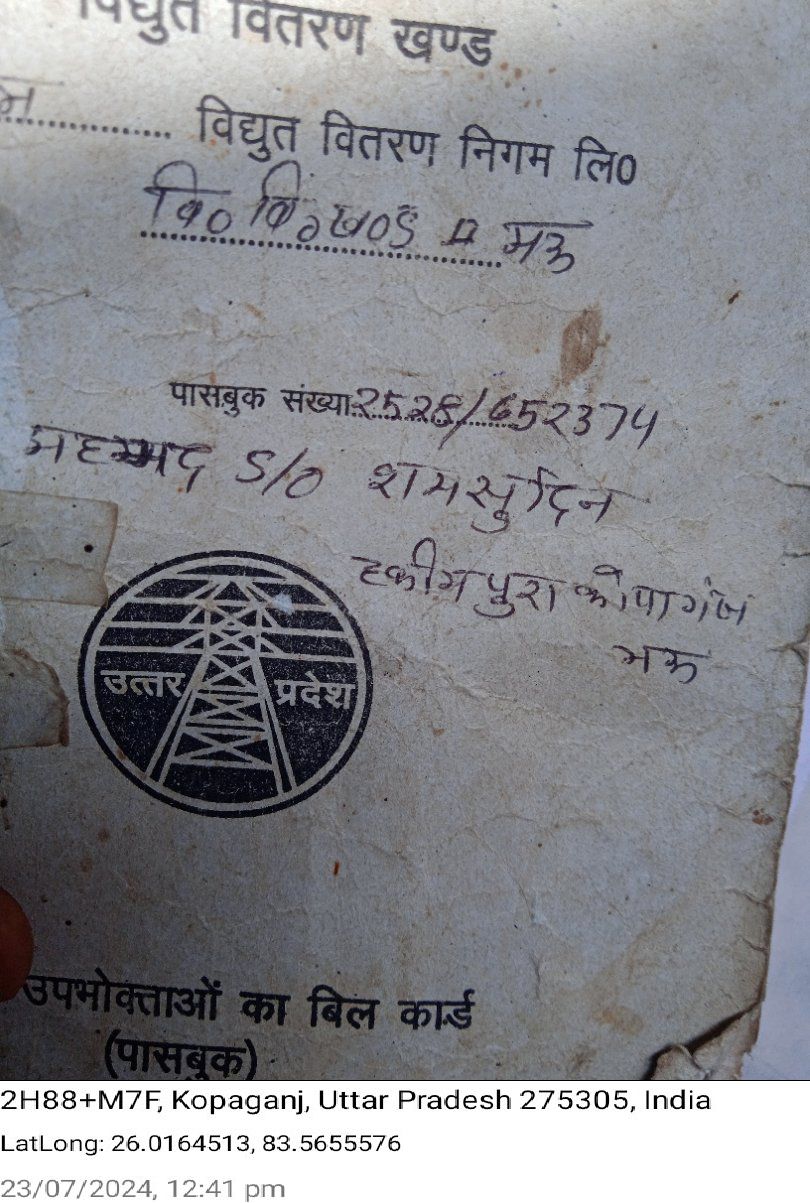 विद्युत वितरण खण्ड
................ विद्युत वितरण निगम लि0
वि० वि० खण्ड म मऊ
पासबुक संख्या 2528/652374
महम्मद S/O शमसुद्दिन
हकीमपुरा कोपागंज
मऊ
उत्तर प्रदेश
उपभोक्ताओं का बिल कार्ड
(पासबुक)
2H88+M7F, Kopaganj, Uttar Pradesh 275305, India
LatLong: 26.0164513, 83.5655576
23/07/2024, 12:41 pm